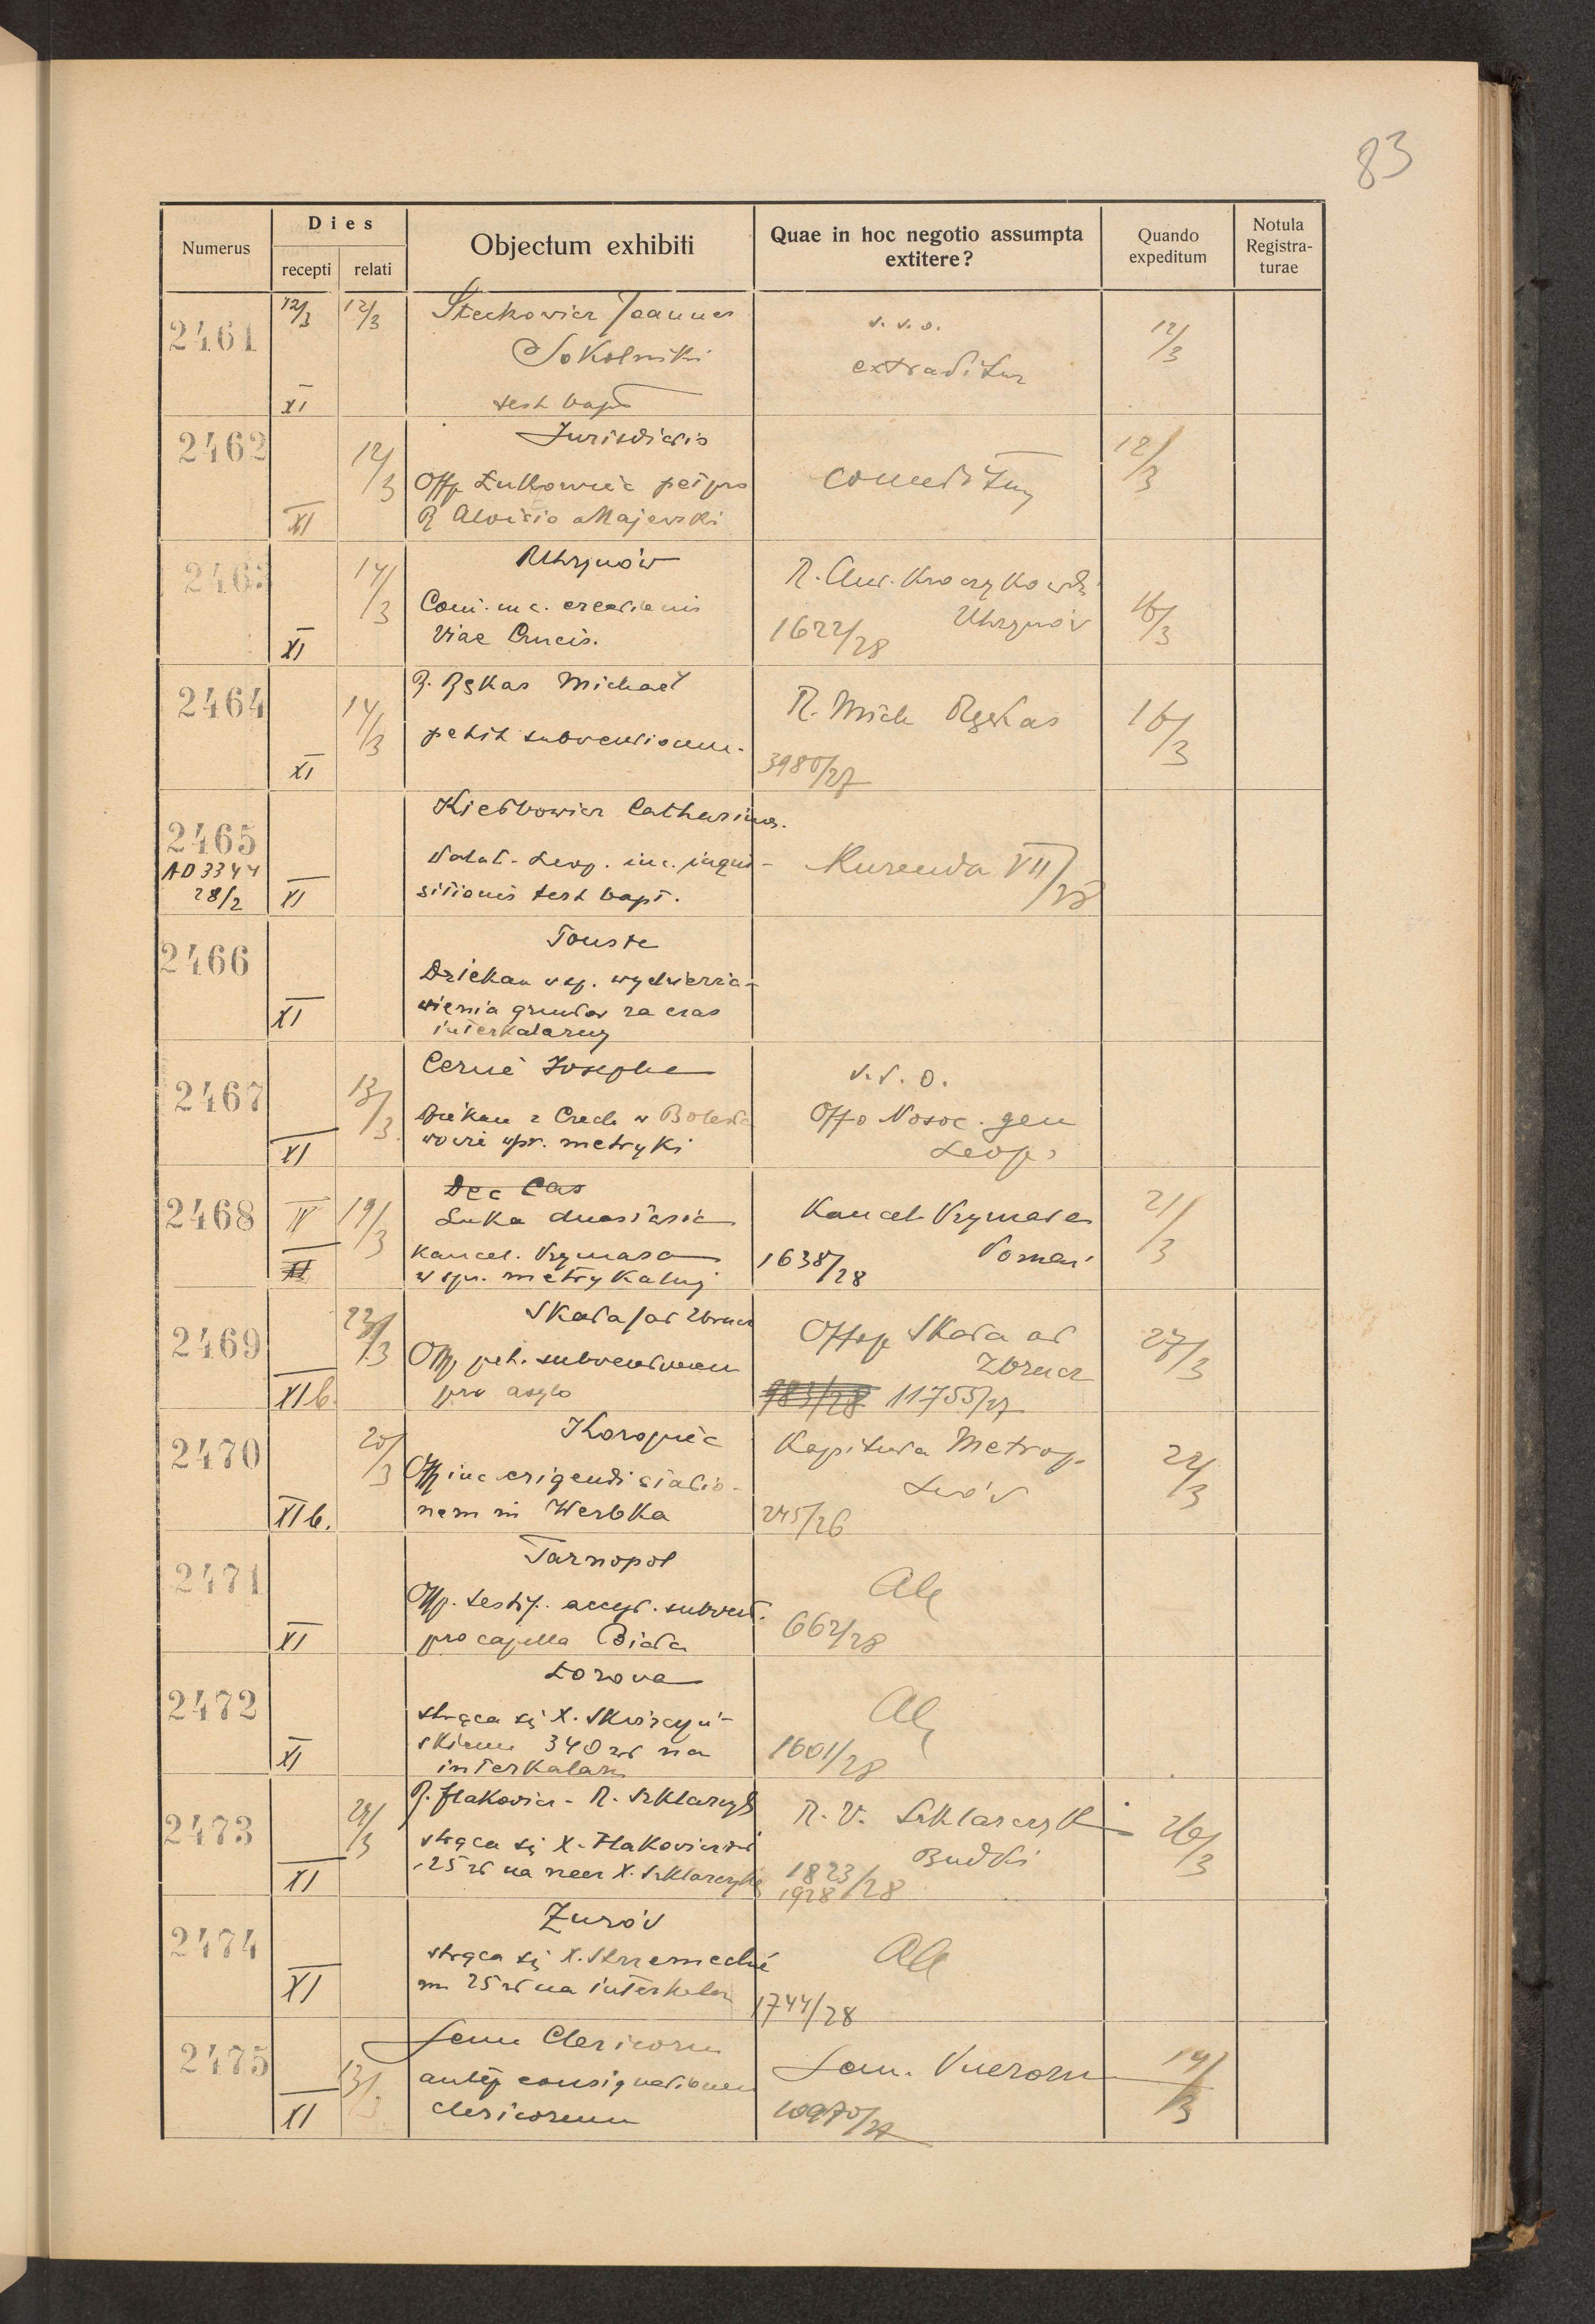 83
Numerus
Dies
recepti relati
Objectum exhibiti
Quae in hoc negotio assumpta
extitere?
Quando
expeditum
Notula
Registra-
turae
2461
12/3 12/3
XI
Steckowicz Joannes
Sokolniki
test bapt
v. s. o.
extraditur
12/3
2462
12/3
XI
Jurisdictio
Offp Łukowiec pet pro
R Aloisio Majewski
conceditur
12/3
2463
14/3
XI
Uhrynów
Com. in c. erectionis
Viae Crucis.
R. Ant.
Uhrynów
1622/28
16/3
2464
14/3
XI
R. Rękas Michael
petit subventionem.
R. Mich Rękas
3980/27
16/3
2465
AD 3344
28/2
XI
Kiełbowicz Catharina.
Leop. inc. inqui-
sitionis test bapt.
Kurenda VII/28
2466
XI
Touste
Dziekan wsp. wydzierża-
wienia gruntów za czas
interkalarny
2467
13/3
XI
Cerne Josephe
Dziekan z Czech w
wowie wpr. metryki
v. s. o.
Offo Nosoc. gen
Leop.
2468
IV 19/3
XI
Dec Cas
Luka Anastasia
Kancel. Prymasa
w spr. metrykalnej
Kancel. Prymasa
Poznań
1638/28
21/3
2469
23/3
XI b.
Skała ad Zbrucz
Offp pet. subventionem
pro asylo
Offop Skała ad
Zbrucz
983/28 11755/27
27/3
2470
20/3
XI b.
Koropiec
Offp inc erigendi statio-
nem in Werbka
Kapituła Metrop.
Lwów
245/26
22/3
2471
XI
Tarnopol
Offp. testif. accept. subvent.
pro capella Biała
Ale
662/28
2472
XI
Łozowa
strąca się X. Skórczyń-
skiemu 340 zł na
interkalar.
Ale
1601/28
2473
24/3
XI
R. Flakowicz - R. Szklarczyk
strąca się X. Flakowiczowi
25 zł na rzecz X. Szklarczyka
R. V. Szklarczyk
Budki
1823
1928/28
26/3
2474
XI
Żurów
strąca się X. Strzemeckie
mu 25 zł na interkalar
Ale
1744/28
2475
13/3
XI
Sem Clericorum
antep consignationem
clericorum
Sem. Puerorum
10970/27
14/3